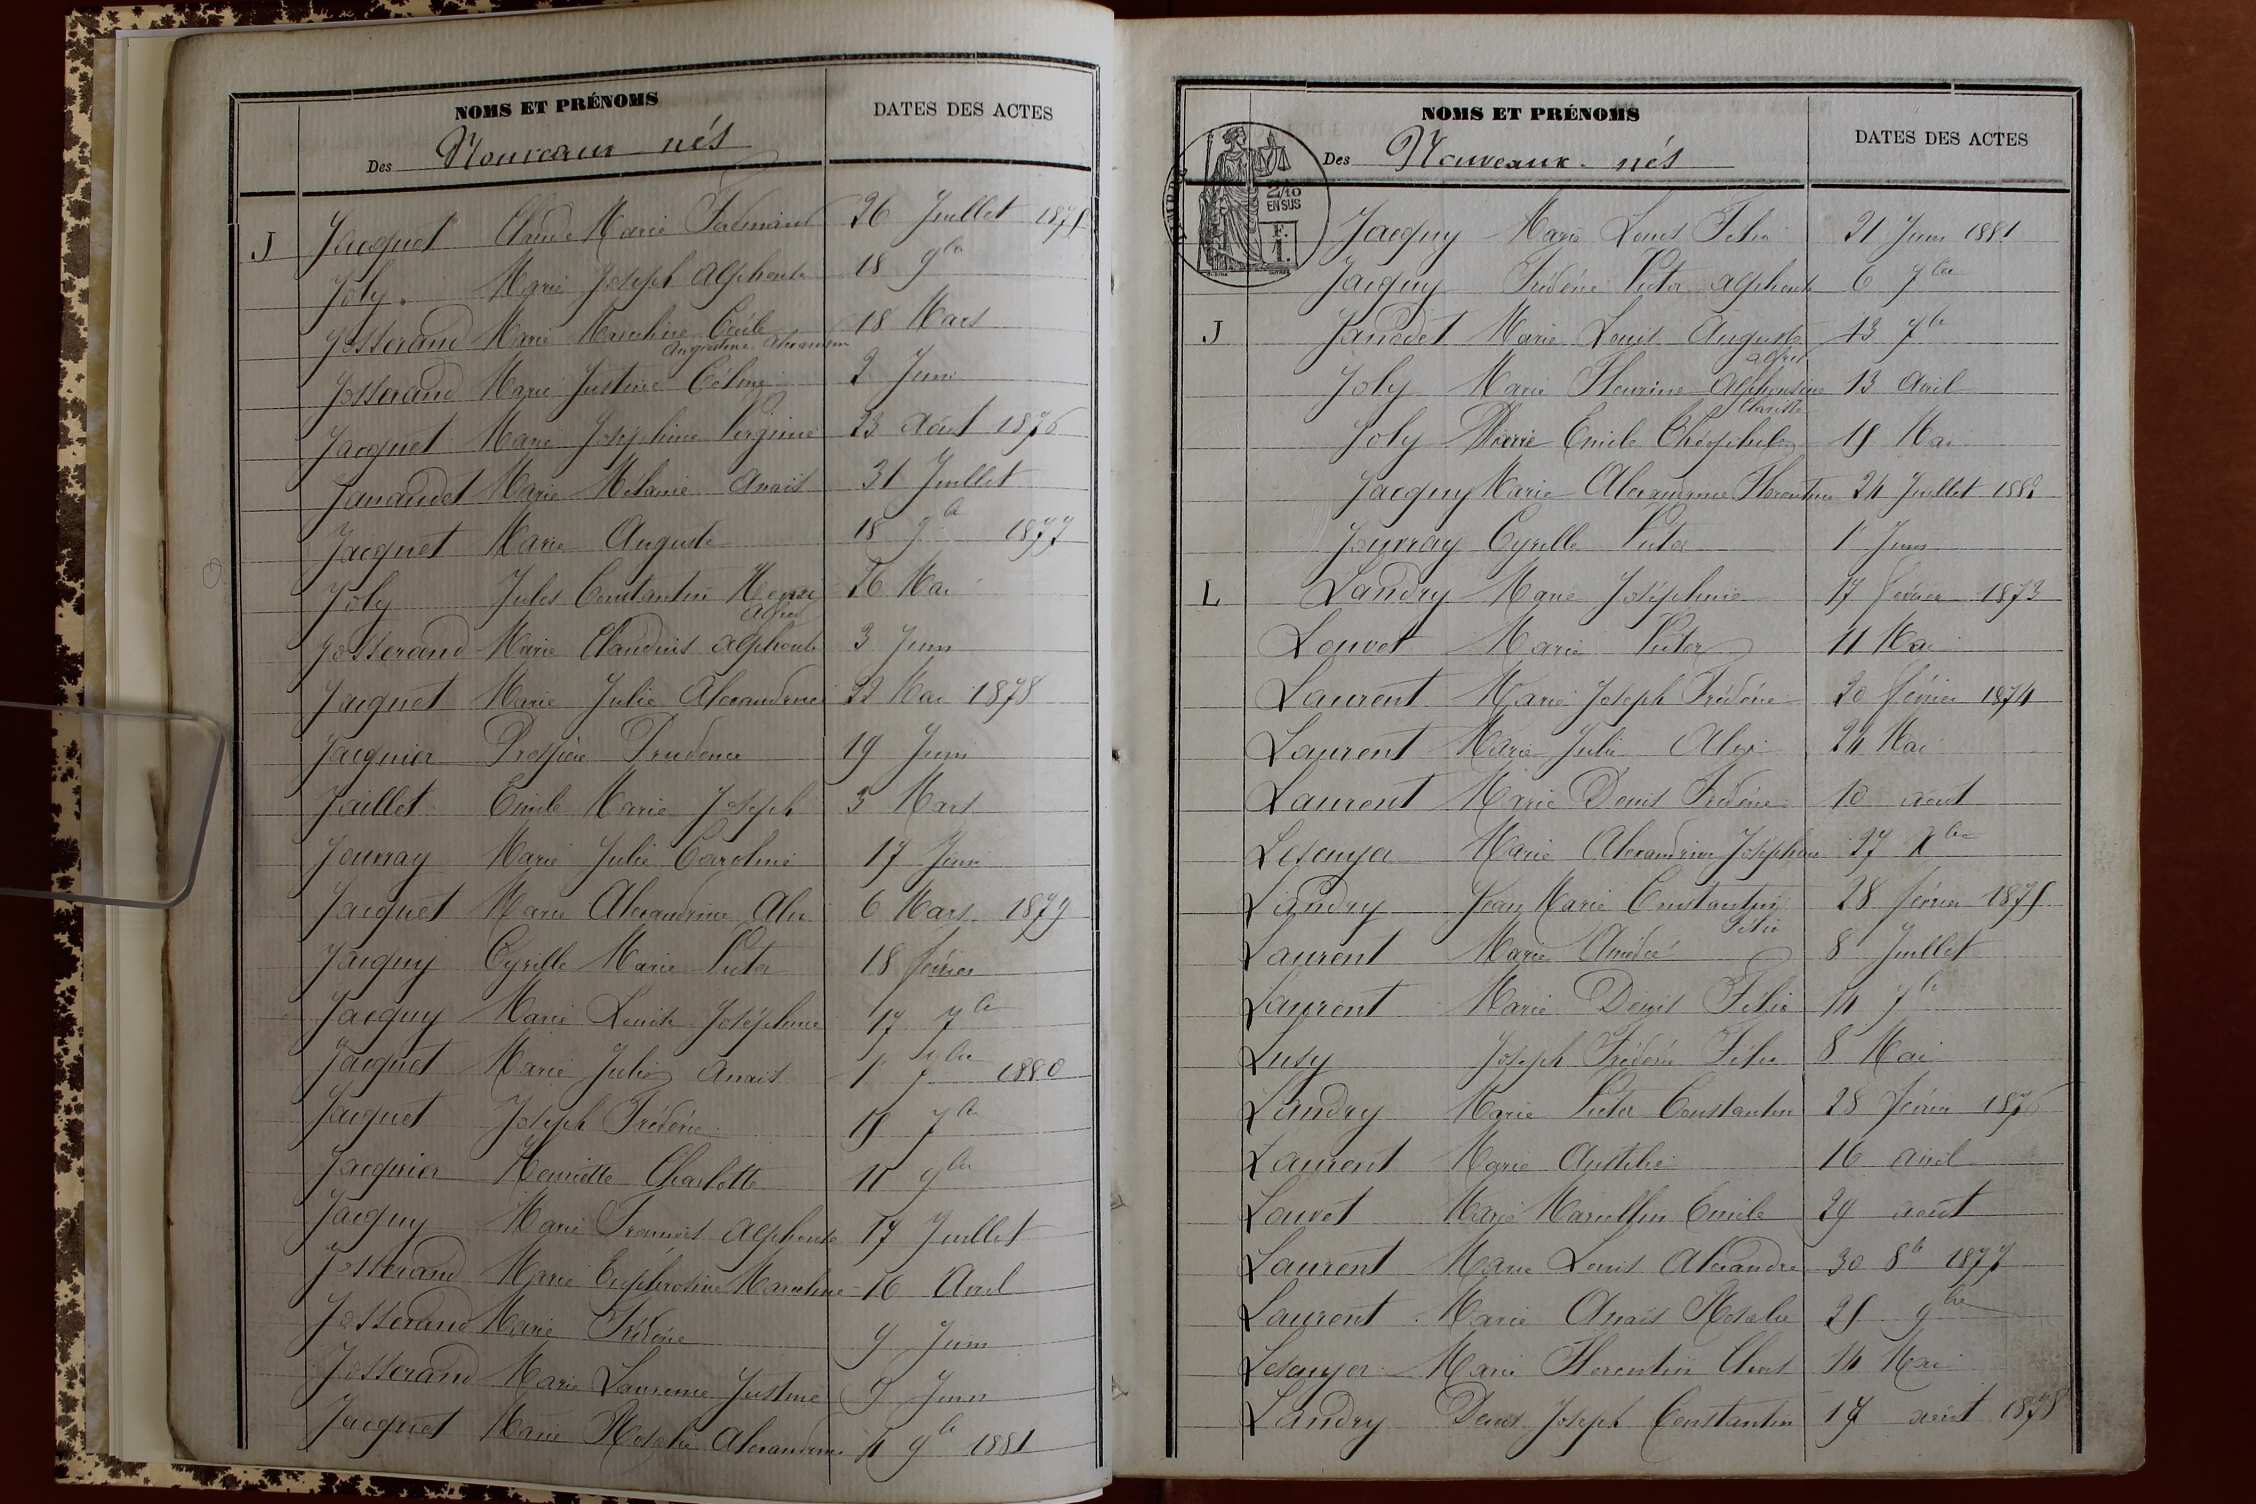 NOMS ET PRÉNOMS
DATES DES ACTES
Des Nouveaux nés
J Jacquet Claude Marie Ferdinand 26 Juillet 1875
Joly Marie Joseph Alphonse 18 9bre
Josserand Marie Marceline Cécile 18 Mars
Augustine Alexandrine
Josserand Marie Justine Céline 2 Juin
Jacquet Marie Joséphine Virginie 23 Août 1876
Janaudet Marie Mélanie Anaïs 31 Juillet
Jacquet Marie Auguste 18 9bre 1877
Joly Jules Constantin 26 Mai
Alfred
Josserand Marie Claudius Alphonse 3 Juin
Jacquet Marie Julie Alexandrine 22 Mai 1878
Jacquier Prospère Prudence 19 Juin
Jaillet Emile Marie Joseph 3 Mars
Jouvray Marie Julie Caroline 17 Juin
Jacquet Marie Alexandrine Alix 6 Mars 1879
Jacquy Cyrille Marie Victor 18 février
Jacquy Marie Louise Joséphine 17 7bre
Jacquet Marie Julie Anaïs 1er 7bre 1880
Jacquet Joseph Frédéric 7bre
Jacquier Henriette Charlotte 11 9bre
Jacquy Marie François Alphonse 17 Juillet
Josserand Marie Euphrosine Marceline 16 Avril
Josserand Marie Frédéric 9 Juin
Josserand Marie Laurence Justine Juin
Jacquet Marie Rosalie Alexandrine 9bre 1881
NOMS ET PRÉNOMS
DATES DES ACTES
Des Nouveaux-nés
2/10
EN SUS
F.
1.
Jacquy Marie Louis Félix 21 Juin 1881
Jacquy Frédéric Victor Alphonse 6 7bre
J Janodet Marie Louis Auguste 13 7bre
Alfred
Joly Marie Fleurine Alphonsine 13 Avril
Clarisse
Joly Pierre Emile Théophile Mai
Jacquy Marie Alexandrine Florentine 24 Juillet 1882
Jouvray Cyrille Victor 1er Juin
L Landry Marie Joséphine 17 février 1873
Louvet Marie Victor 11 Mai
Laurent Marie Joseph Frédéric 20 février 1874
Laurent Marie Julie Alix 24 Mai
Laurent Marie Denis Frédéric 10 août
Lesauyer Marie Alexandrine Joséphine 27 Xbre
Landry Jean Marie Constantin 28 février 1875
Félix
Laurent Marie Amédée 8 Juillet
Laurent Marie Denis Félix 14 7bre
Lusy Joseph Frédéric Félix 8 Mai
Landry Marie Victor Constantin 28 février 1876
Laurent Marie 16 avril
Louvet Marie Marcellin Emile 29 août
Laurent Marie Louis Alexandre 30 8bre 1877
Laurent Marie Anaïs Rosalie 25 9bre
Lesauyer Marie Florentin 14 Mai
Landry Denis Joseph Constantin 17 août 1878